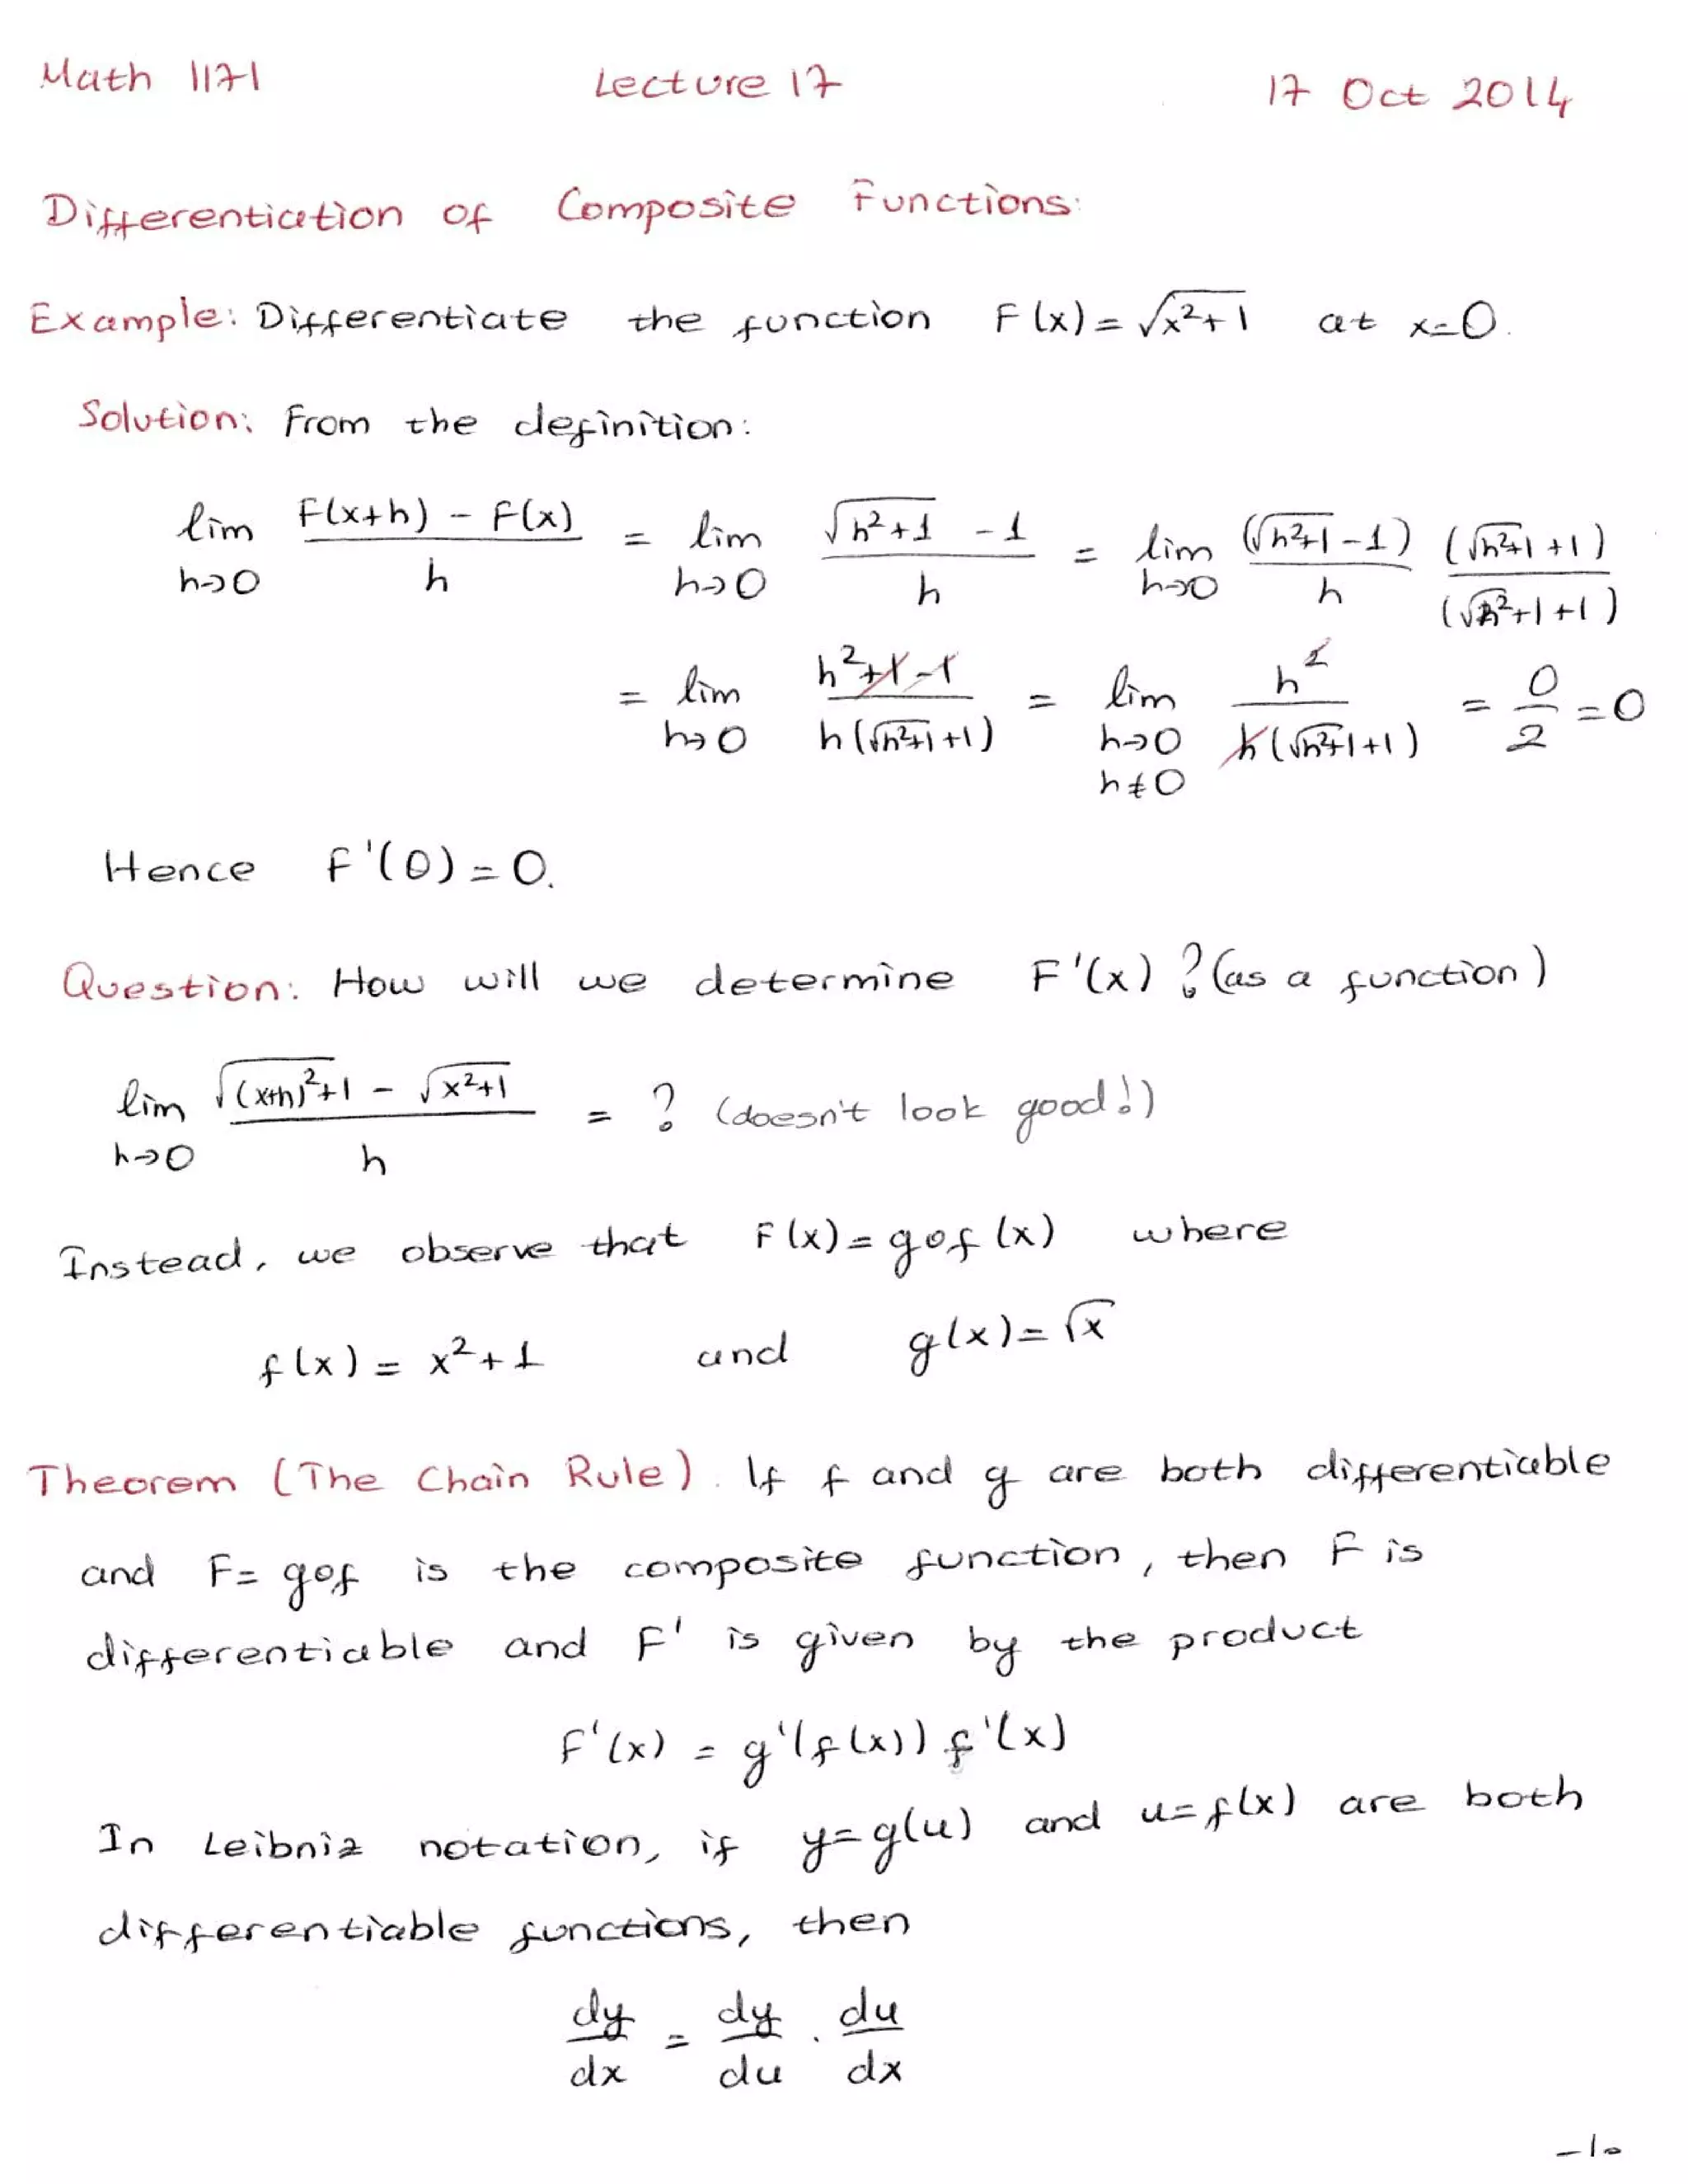 Math 1171 Lecture 17 17 Oct 2014
Differentiation of Composite Functions:
Example: Differentiate the function F(x) = √(x²+1) at x=0.
Solution: From the definition:
lim_{h→0} (F(x+h) - F(x))/h = lim_{h→0} (√(h²+1) - 1)/h = lim_{h→0} (√(h²+1) - 1)/h (√(h²+1) + 1)/(√(h²+1) + 1)
= lim_{h→0} (h²+1-1)/(h(√(h²+1) + 1)) = lim_{h→0, h≠0} h²/(h(√(h²+1) + 1)) = 0/2 = 0
Hence F'(0) = 0.
Question: How will we determine F'(x)? (as a function)
lim_{h→0} (√((x+h)²+1) - √(x²+1))/h = ? (doesn't look good!)
Instead, we observe that F(x) = gof(x) where
f(x) = x²+1 and g(x) = √x
Theorem (The Chain Rule). If f and g are both differentiable
and F = gof is the composite function, then F is
differentiable and F' is given by the product
F'(x) = g'(f(x)) f'(x)
In Leibniz notation, if y=g(u) and u=f(x) are both
differentiable functions, then
dy/dx = dy/du · du/dx
-1-